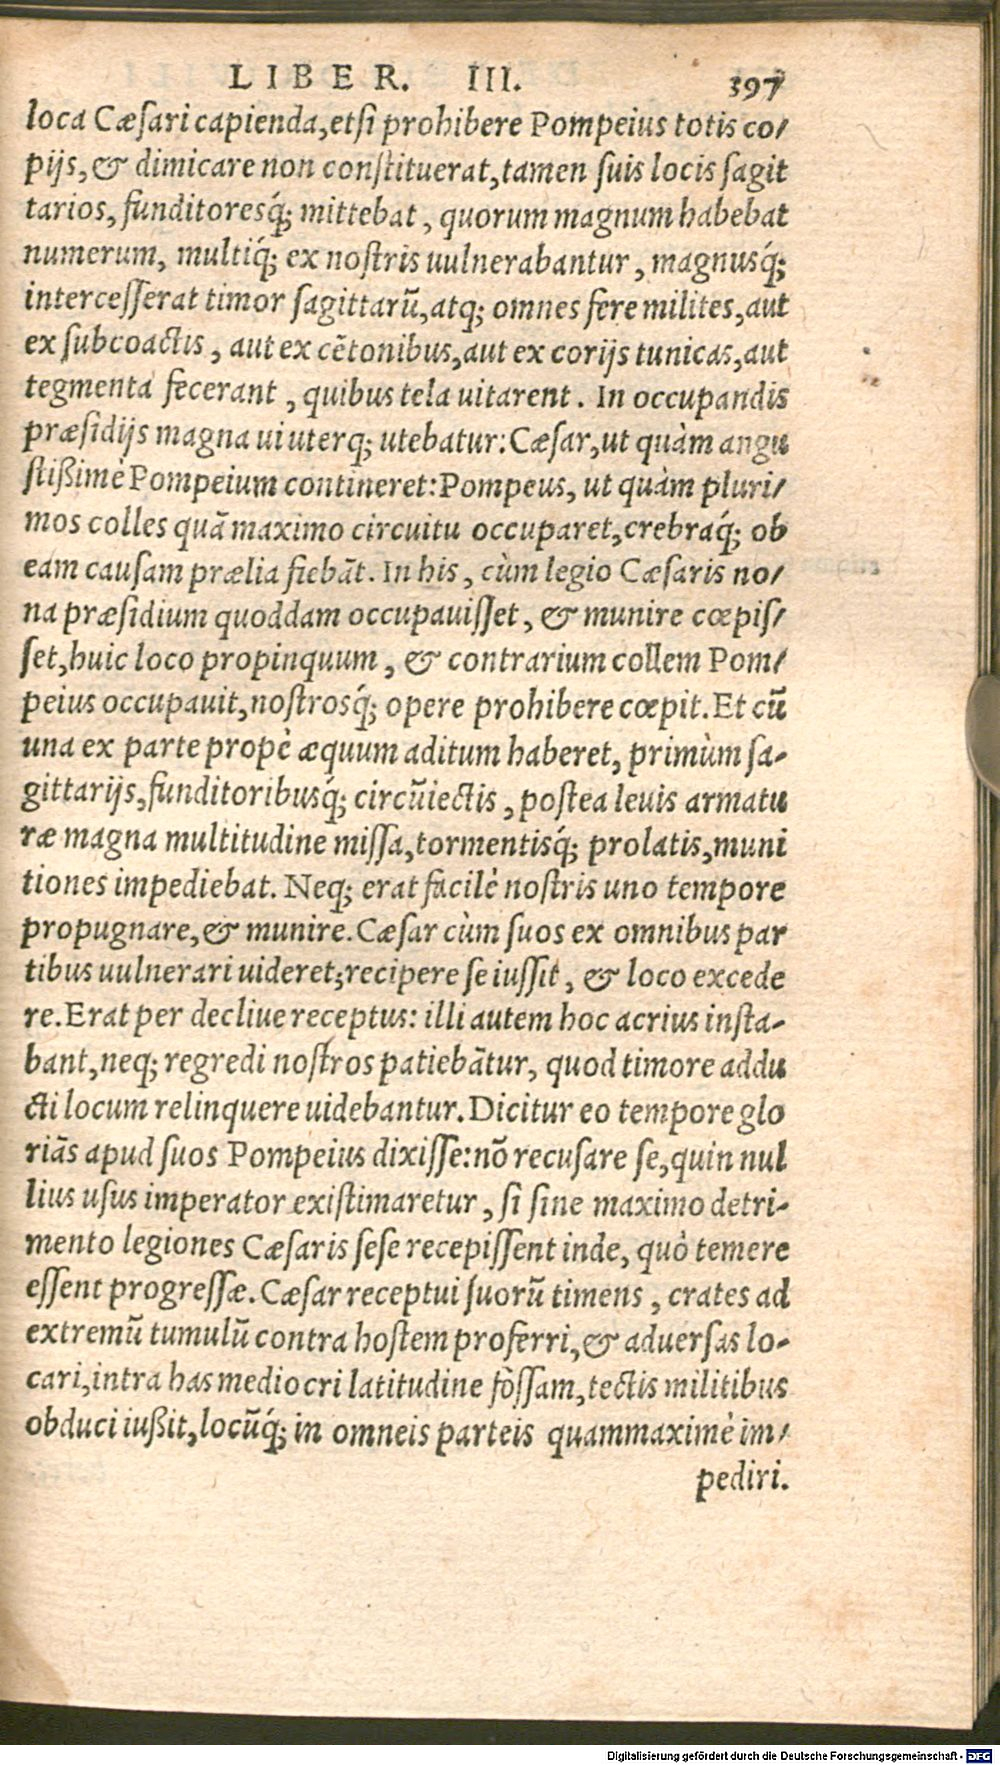 LIBER. III. 397
loca Cæsari capienda, etsi prohibere Pompeius totis co/
pijs, & dimicare non constituerat, tamen suis locis sagit
tarios, funditoresq́; mittebat, quorum magnum habebat
numerum, multiq́; ex nostris uulnerabantur, magnusq́;
intercesserat timor sagittarũ, atq; omnes fere milites, aut
ex subcoactis, aut ex cẽtonibus, aut ex corijs tunicas, aut
tegmenta fecerant, quibus tela uitarent. In occupandis
præsidijs magna ui uterq; utebatur: Cæsar, ut quàm angu
stißimè Pompeium contineret: Pompeus, ut quàm pluri/
mos colles quã maximo circuitu occuparet, crebraq́; ob
eam causam prælia fiebãt. In his, cùm legio Cæsaris no/
na præsidium quoddam occupauisset, & munire cœpis/
set, huic loco propinquum, & contrarium collem Pom/
peius occupauit, nostrosq́; opere prohibere cœpit. Et cũ
una ex parte propè æquum aditum haberet, primùm sa-
gittarijs, funditoribusq́; circũiectis, postea leuis armatu
ræ magna multitudine missa, tormentisq́; prolatis, muni
tiones impediebat. Neq; erat facilè nostris uno tempore
propugnare, & munire. Cæsar cùm suos ex omnibus par
tibus uulnerari uideret; recipere se iussit, & loco excede
re. Erat per decliue receptus: illi autem hoc acrius insta-
bant, neq; regredi nostros patiebãtur, quod timore addu
cti locum relinquere uidebantur. Dicitur eo tempore glo
riãs apud suos Pompeius dixisse: nõ recusare se, quin nul
lius usus imperator existimaretur, si sine maximo detri-
mento legiones Cæsaris sese recepissent inde, quò temere
essent progressæ. Cæsar receptui suorũ timens, crates ad
extremũ tumulũ contra hostem proferri, & aduersas lo-
cari, intra has mediocri latitudine fòssam, tectis militibus
obduci iußit, locũq́; in omneis parteis quammaximè im/
pediri.
Digitalisierung gefördert durch die Deutsche Forschungsgemeinschaft - DFG